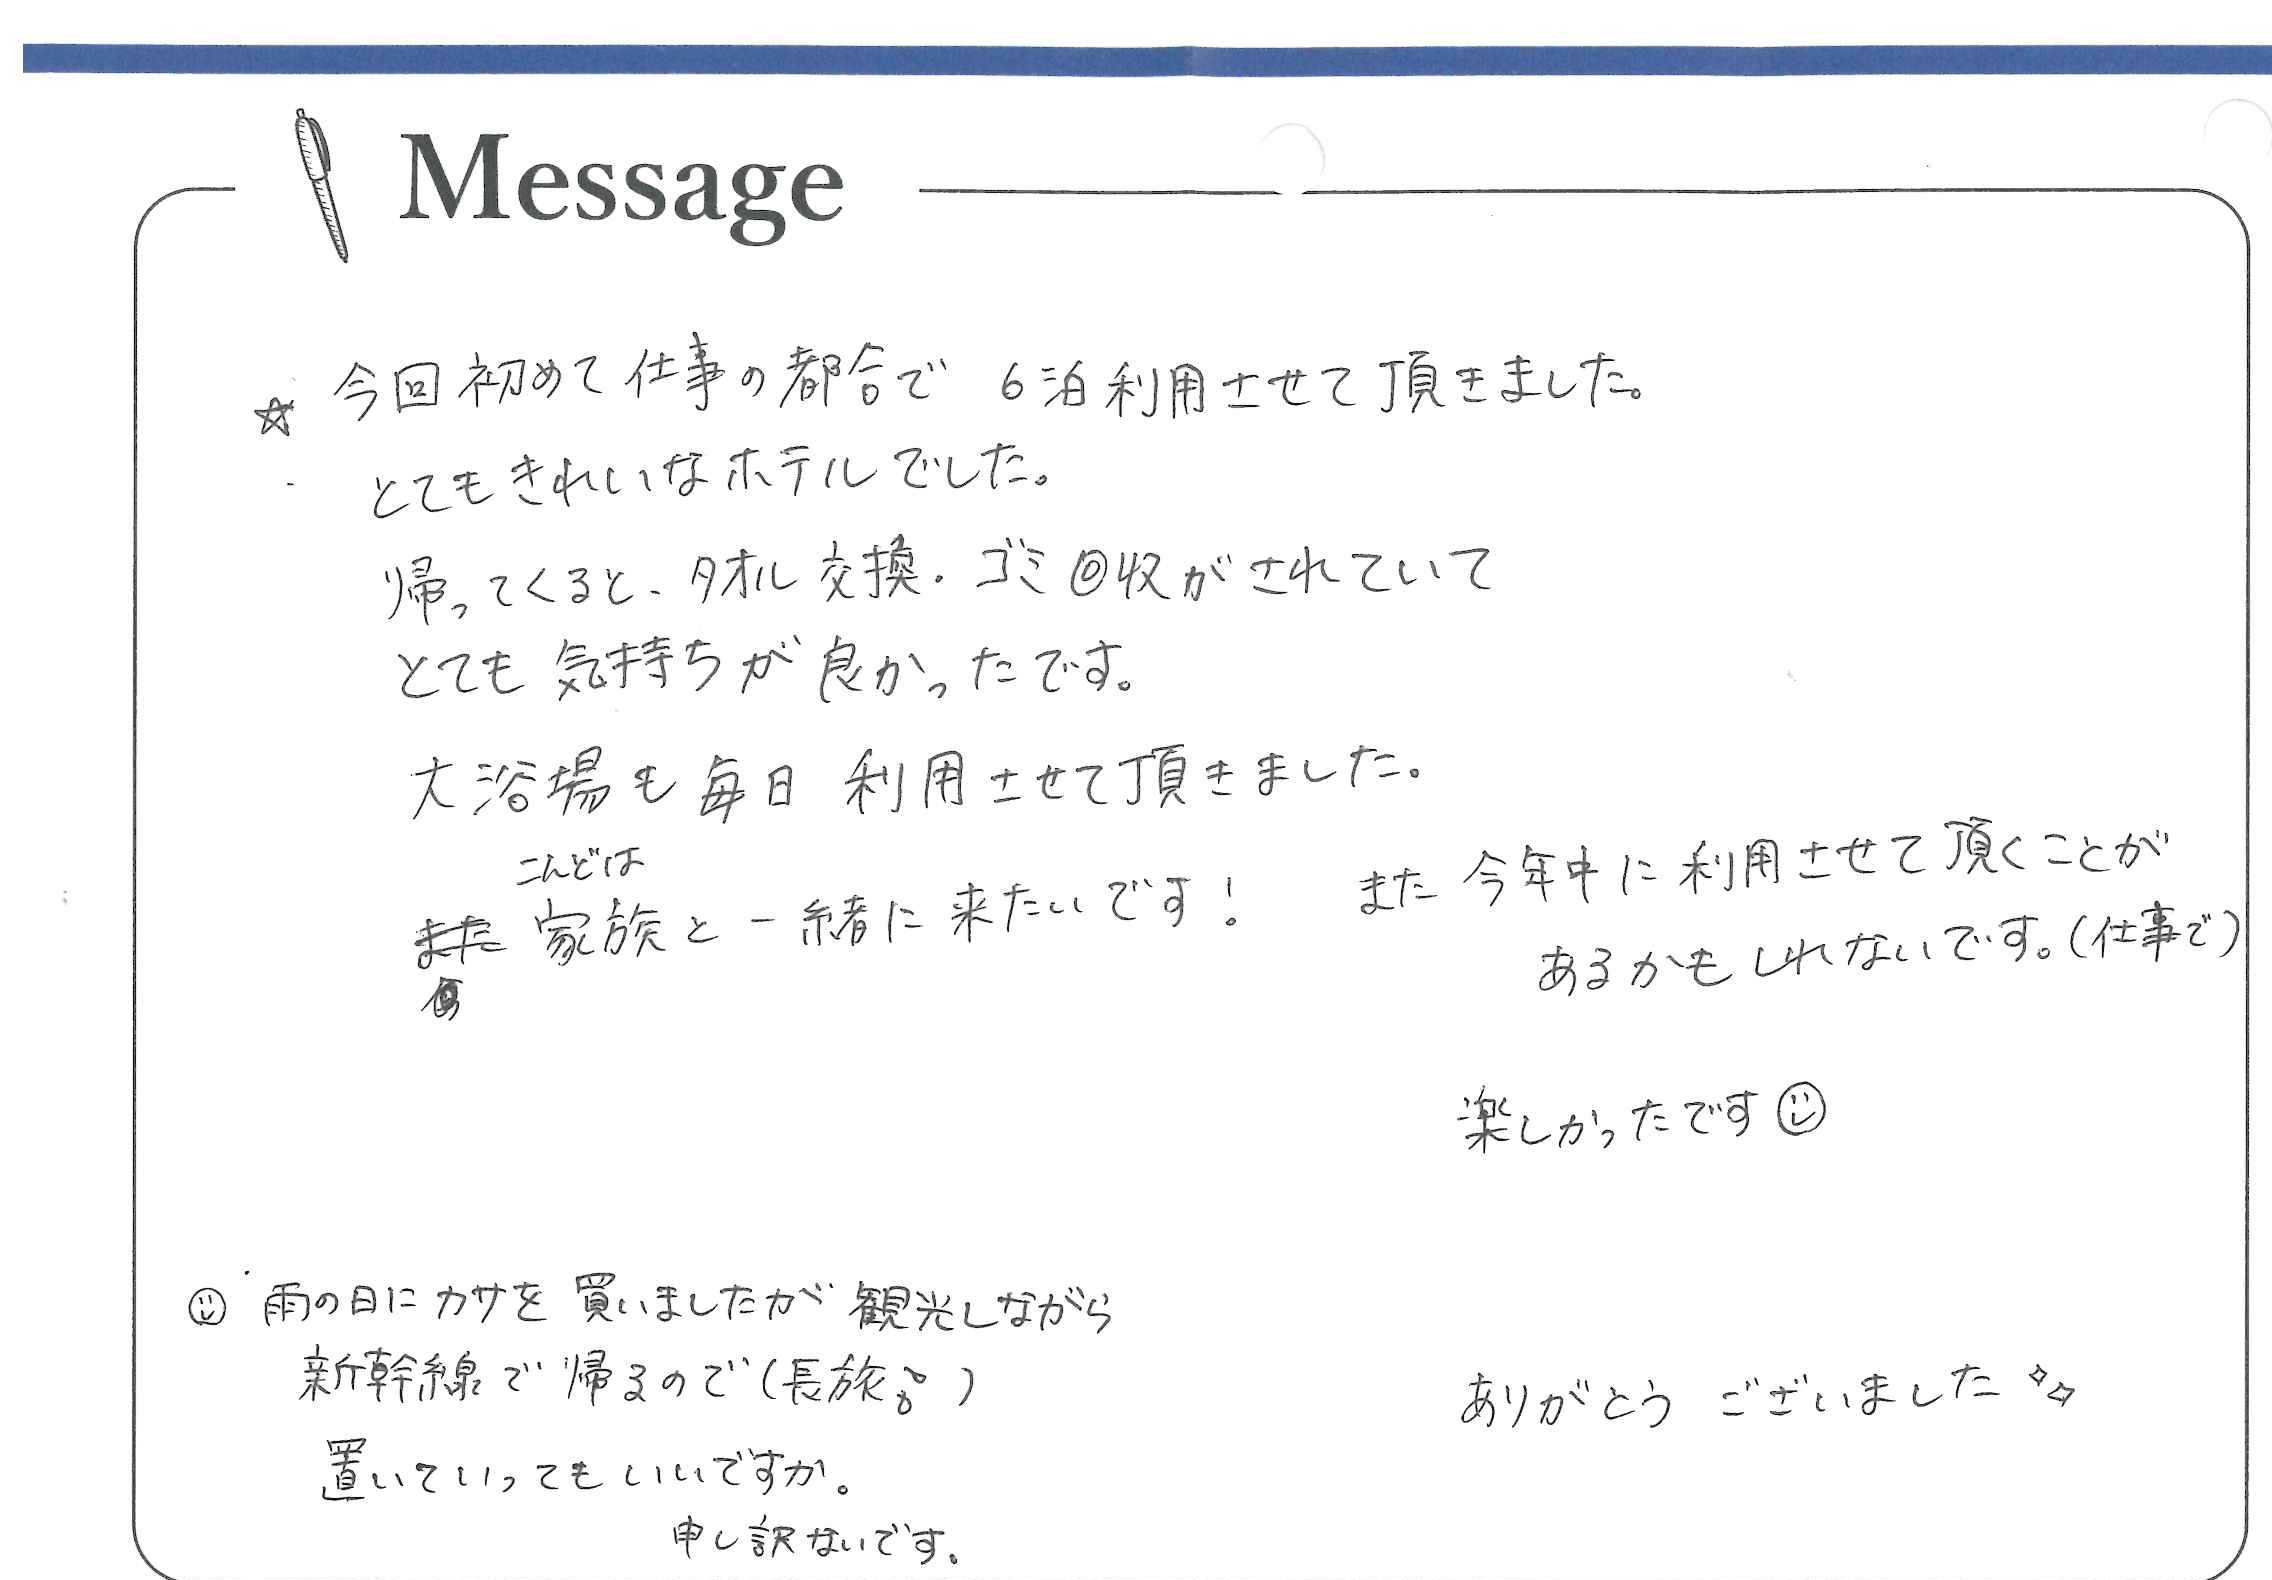 Message
☆ 今回初めて仕事の都合で 6泊利用させて頂きました。
とてもきれいなホテルでした。
帰ってくると、タオル交換・ゴミ回収がされていて
とても気持ちが良かったです。
大浴場も毎日 利用させて頂きました。
こんどは
また 家族と一緒に来たいです!
また 今年中に利用させて頂くことが
あるかもしれないです。(仕事で)
楽しかったです☺
☺ 雨の日にカサを買いましたが観光しながら
新幹線で帰るので(長旅 )
置いていってもいいですか。
申し訳ないです。
ありがとう ございました